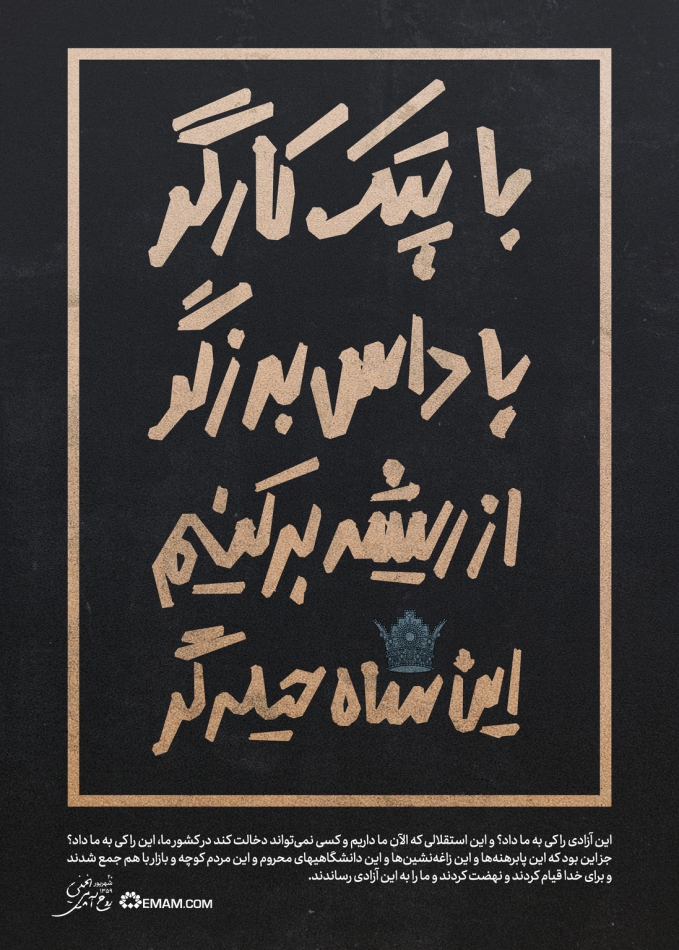 با پتک کارگر
با داس برزگر
از ریشه برکنیم
این شاه حیله گر
این آزادی را کی به ما داد؟ و این استقلالی که الآن ما داریم و کسی نمی‌تواند دخالت کند در کشور ما، این را کی به ما داد؟
جز این بود که این پابرهنه‌ها و این زاغه‌نشین‌ها و این دانشگاهیهای محروم و این مردم کوچه و بازار با هم جمع شدند
و برای خدا قیام کردند و نهضت کردند و ما را به این آزادی رساندند.
۲۰
شهریور
۱۳۵۹
EMAM.COM